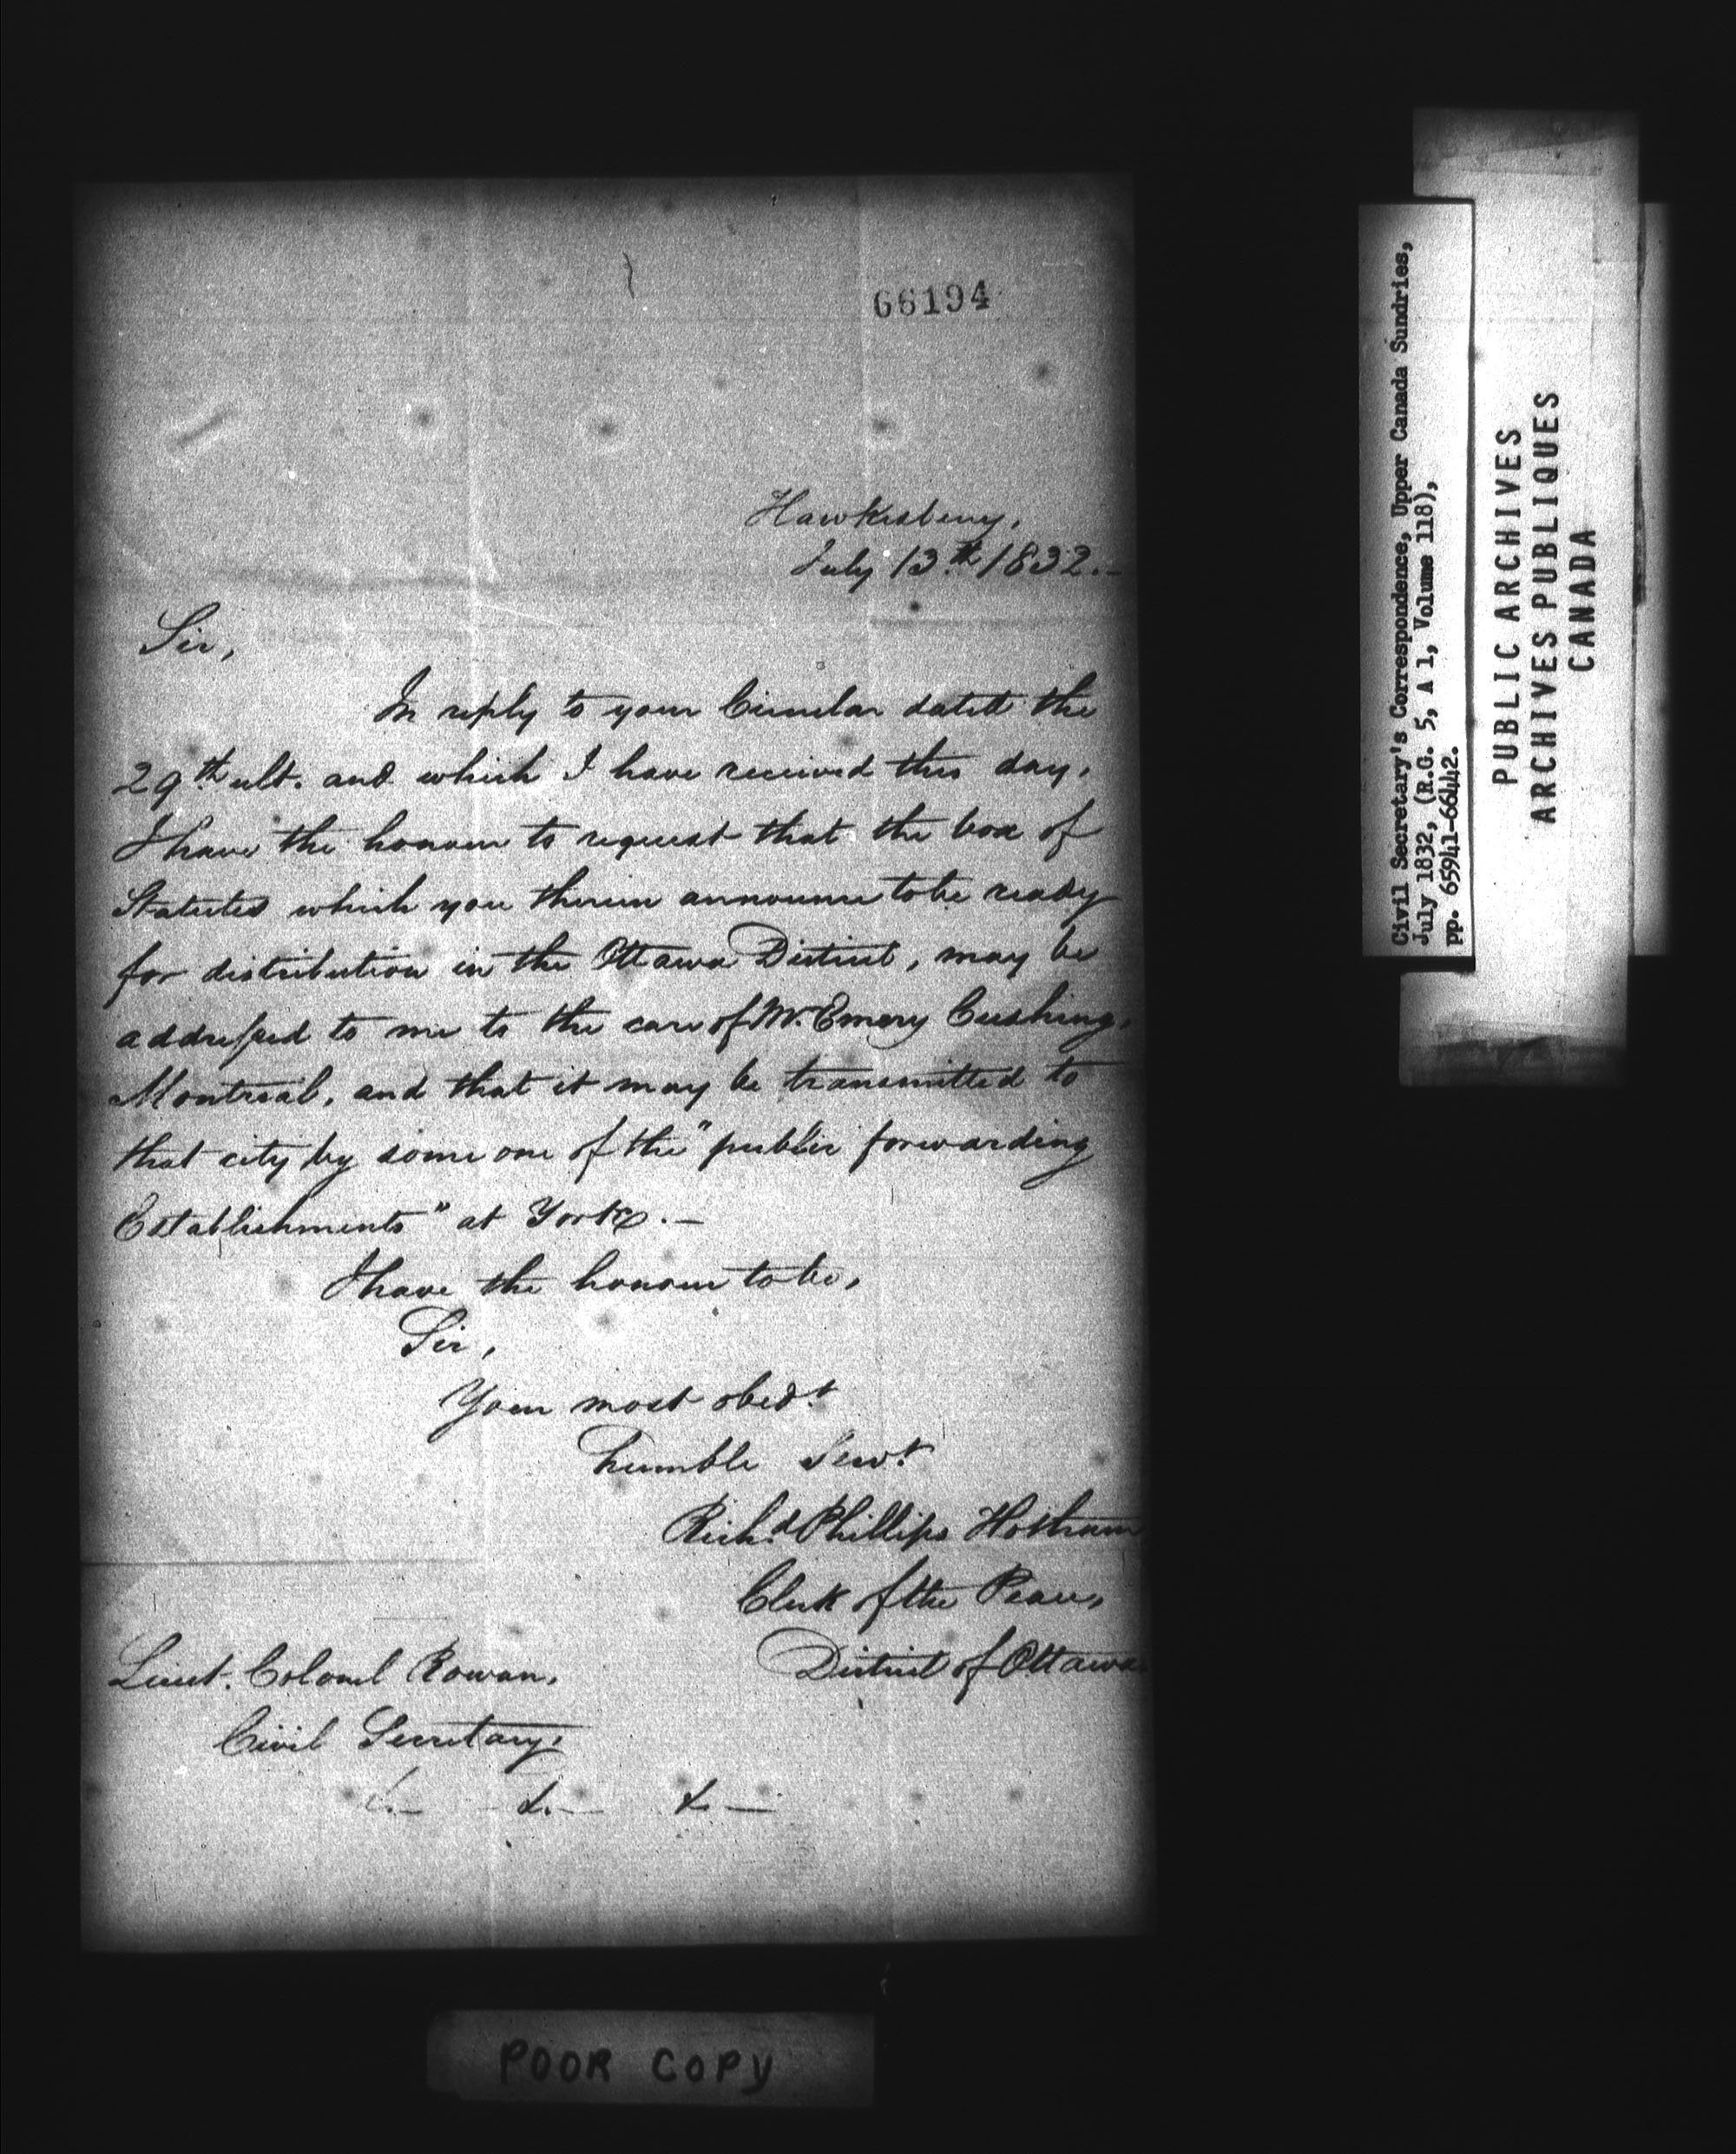 66194
Hawkesbury,
July 13th 1832.-
Sir,
In reply to your Circular dated the
29th ult. and which I have received this day,
I have the honour to request that the box of
Statutes which you therein announce to be ready
for distribution in the Ottawa District, may be
addressed to me to the care of Mr. Emery Cushing,
Montreal, and that it may be transmitted to
that city by some one of the "public forwarding
Establishments" at York.-
I have the honour to be,
Sir,
Your most obedt.
humble Servt.
Richd. Phillips Hotham
Clerk of the Peace,
District of Ottawa
Lieut. Colonel Rowan,
Civil Secretary,
&.- &.- &.-
Civil Secretary's Correspondence, Upper Canada Sundries,
July 1832, (R.G. 5, A 1, Volume 118),
pp. 65941-66442.
PUBLIC ARCHIVES
ARCHIVES PUBLIQUES
CANADA
POOR COPY